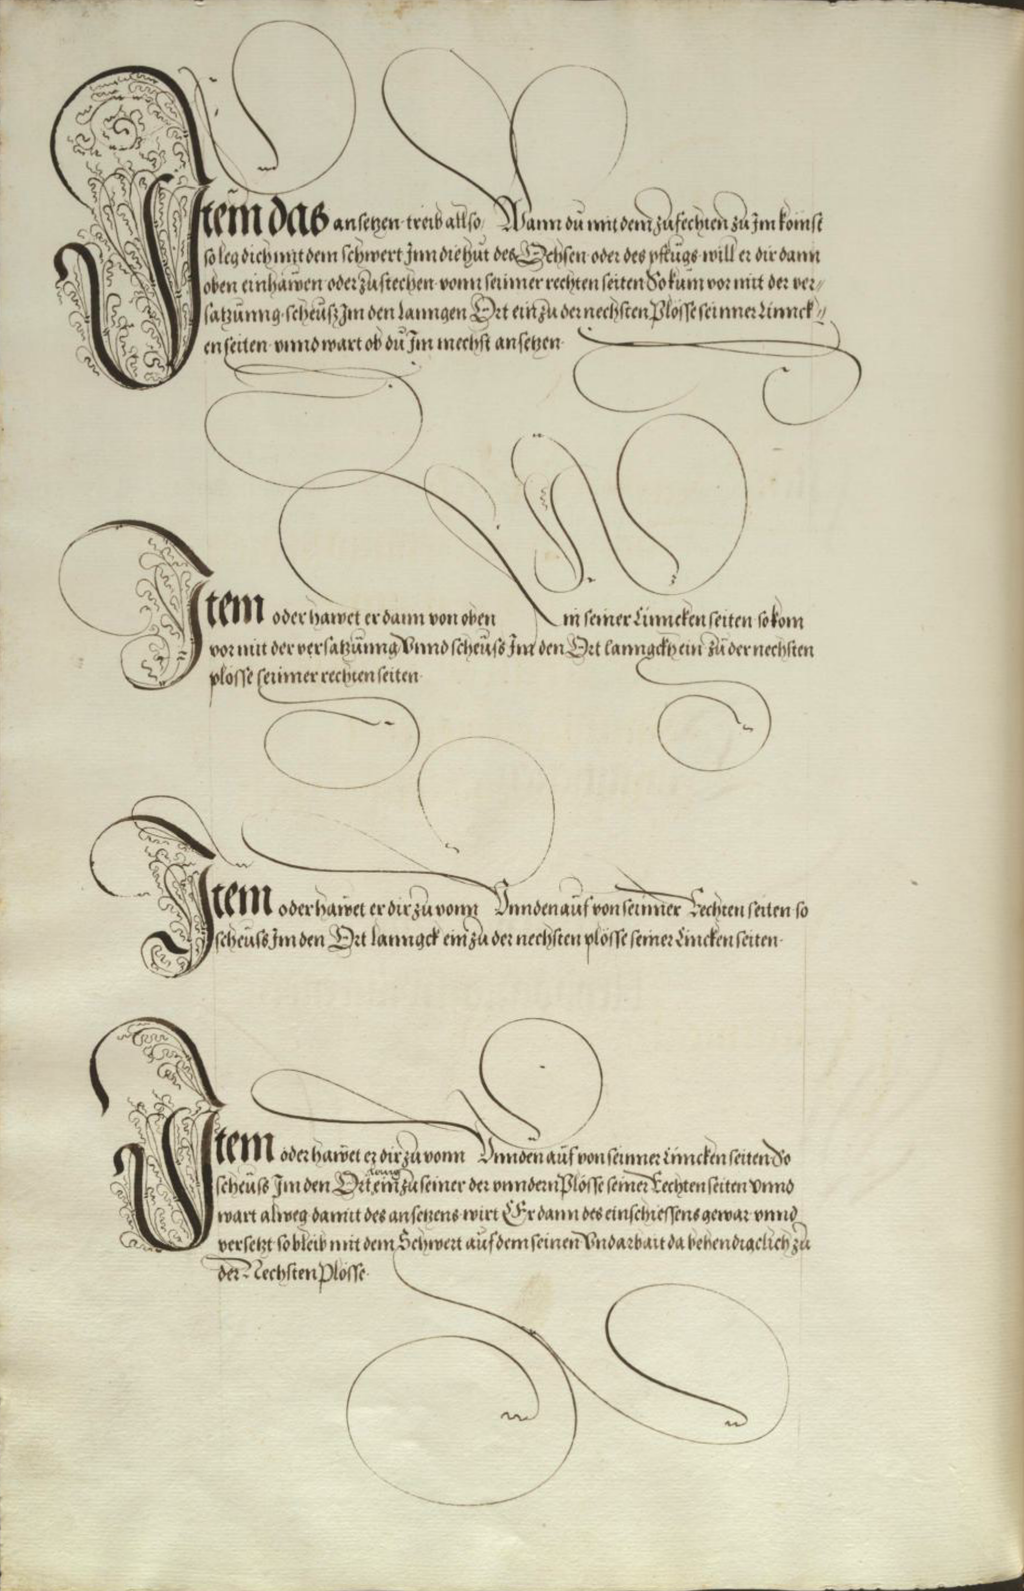 Item das ansetzen treib allso Wann du mit dem zufechten zu Im komst
so leg dich mit dem schwert Inn die hut des Ochsen oder des pflugs will er dir dann
oben einhawen oder zu stechen vonn seinner rechten seiten So kum vor mit der ver//
satzunng scheuß Im den lanngen Ort ein zu der nechsten Plösse seinner Linnck//
en seiten vnnd wart ob du Im mechst ansetzen
Item oder hawet er dann von oben in seiner Linncken seiten so kom
vor mit der versatzunng Vnnd scheuss Im den Ort lanngckh ein zu der nechsten
plösse seinner rechten seiten
Item oder hawet er dir zu vonn Vnnden auf von seinner Rechten seiten so
scheuss Im den Ort lanngck ein zu der nechsten plösse seiner Lincken seiten
Item oder hawet er dir zu vonn Vnnden auf von seinner Linncken seiten So
scheuss Im den Ort lang ein zu seiner der vnndern Plösse seiner Rechten seiten Vnnd
wart alweg damit des ansetzens wirt Er dann des einschiessens gewar vnnd
versetzt so bleib mit dem Schwert auf dem seinen Vnd arbait da behendigclich zu
der Nechsten Plösse